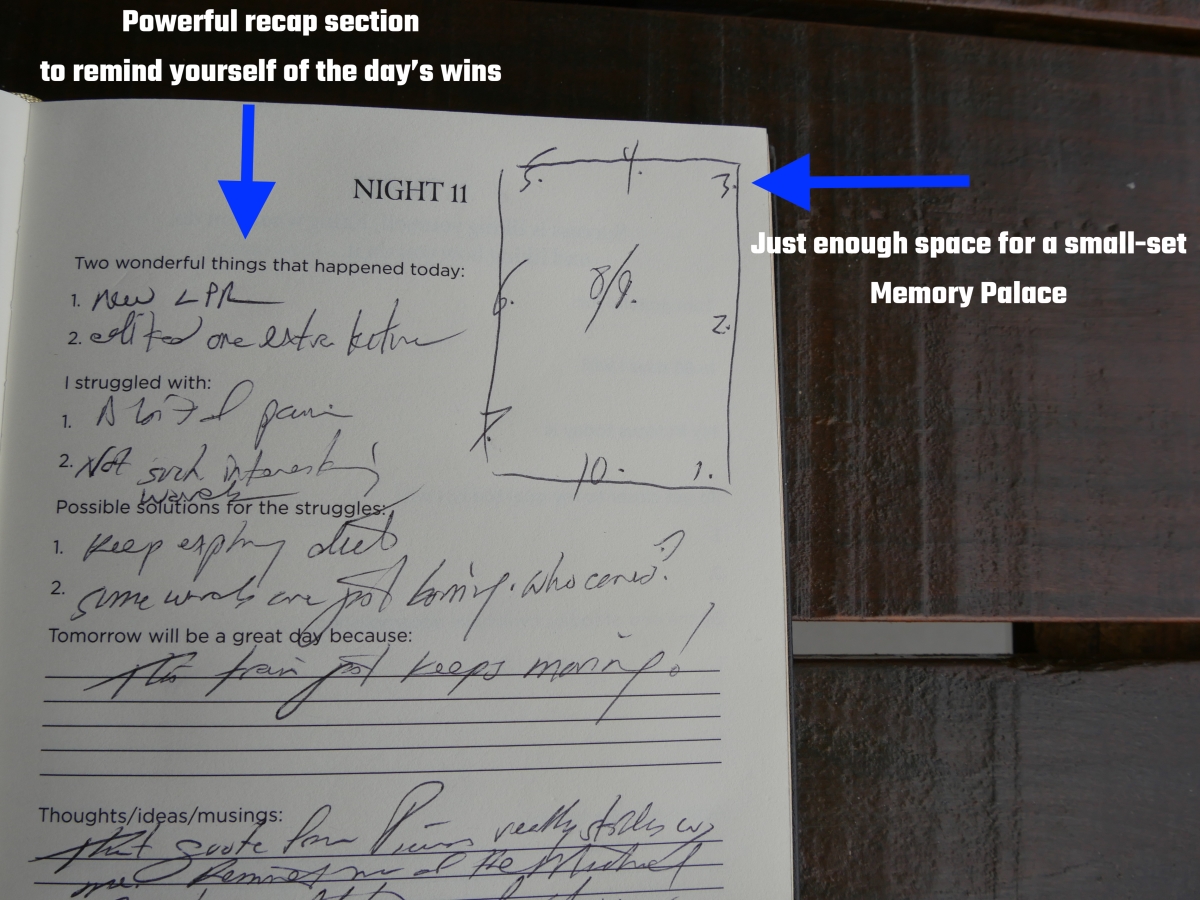 Powerful recap section
to remind yourself of the day's wins
NIGHT 11
5.
4.
3.
Just enough space for a small-set
Memory Palace
6.
8/9.
2.
7.
10.
1.
Two wonderful things that happened today:
1. New LPR
2. edited one extra lecture
I struggled with:
1. A bit of pain
2. Not such interesting
words
Possible solutions for the struggles:
1. Keep diet
2. some words are just boring. who cares?
Tomorrow will be a great day because:
this train just keeps moving!
Thoughts/ideas/musings:
That quote from really sticks w/
me. Reminds me of the Michael